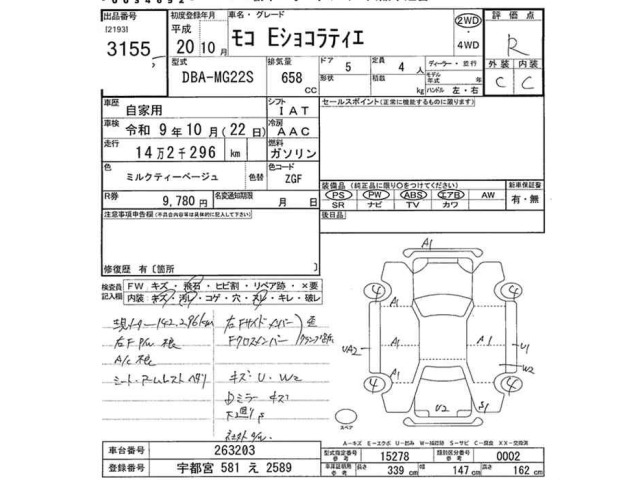 出品番号
I2193I
3155
初度登録年月
平成
20 10月
車名・グレード
モコ Eショコラティエ
2WD
・
4WD
評価点
R
外装 内装
C C
型式
DBA-MG22S
排気量
658
CC
ドア 5
形状
定員 4 人
積載
kg
ディーラー・並行
モデル年式 年
ハンドル 左・右
車歴
自家用
シフト
IAT
車検
令和 9年10月(22日)
冷房
AAC
走行
14万2千296 km
燃料
ガソリン
色
ミルクティーベージュ
色替
色コード
ZGF
R券
9,780 円
名変通知期限
月 日
セールスポイント(正常に機能するものに限ります)
装備品(純正品に限り○をつけてください)
PS PW ABS エアB AW
SR ナビ TV カワ
新車保証書
有・無
後日品
注意事項申告欄(不具合内容等は具体的に記入して下さい)
修復歴 有〔箇所
検査員
記入欄
FW キズ・飛石・ヒビ割・リペア跡・×要
内装 キズ・汚レ・コゲ・穴・スレ・キレ・破レ
現メーター142.296km
右F P/W 検
A/C 検
シート・アームレスト ヘタリ
右Fサイドメンバー
Fクロスメンバー
キズ・U・W2
ミラー キズ
A1
4 A1 4
UA2 A1 U1
W2
4 A1 4
U2 S1
スペア
A-キズ E-エクボ U-凹み W-補修跡 S-サビ C-腐食 XX-交換済
車台番号 263203
登録番号 宇都宮 581 え 2589
型式指定番号 参考 15278
類別区分番号 参考 0002
車庫証明用 参考 長さ 339 cm 幅 147 cm 高さ 162 cm